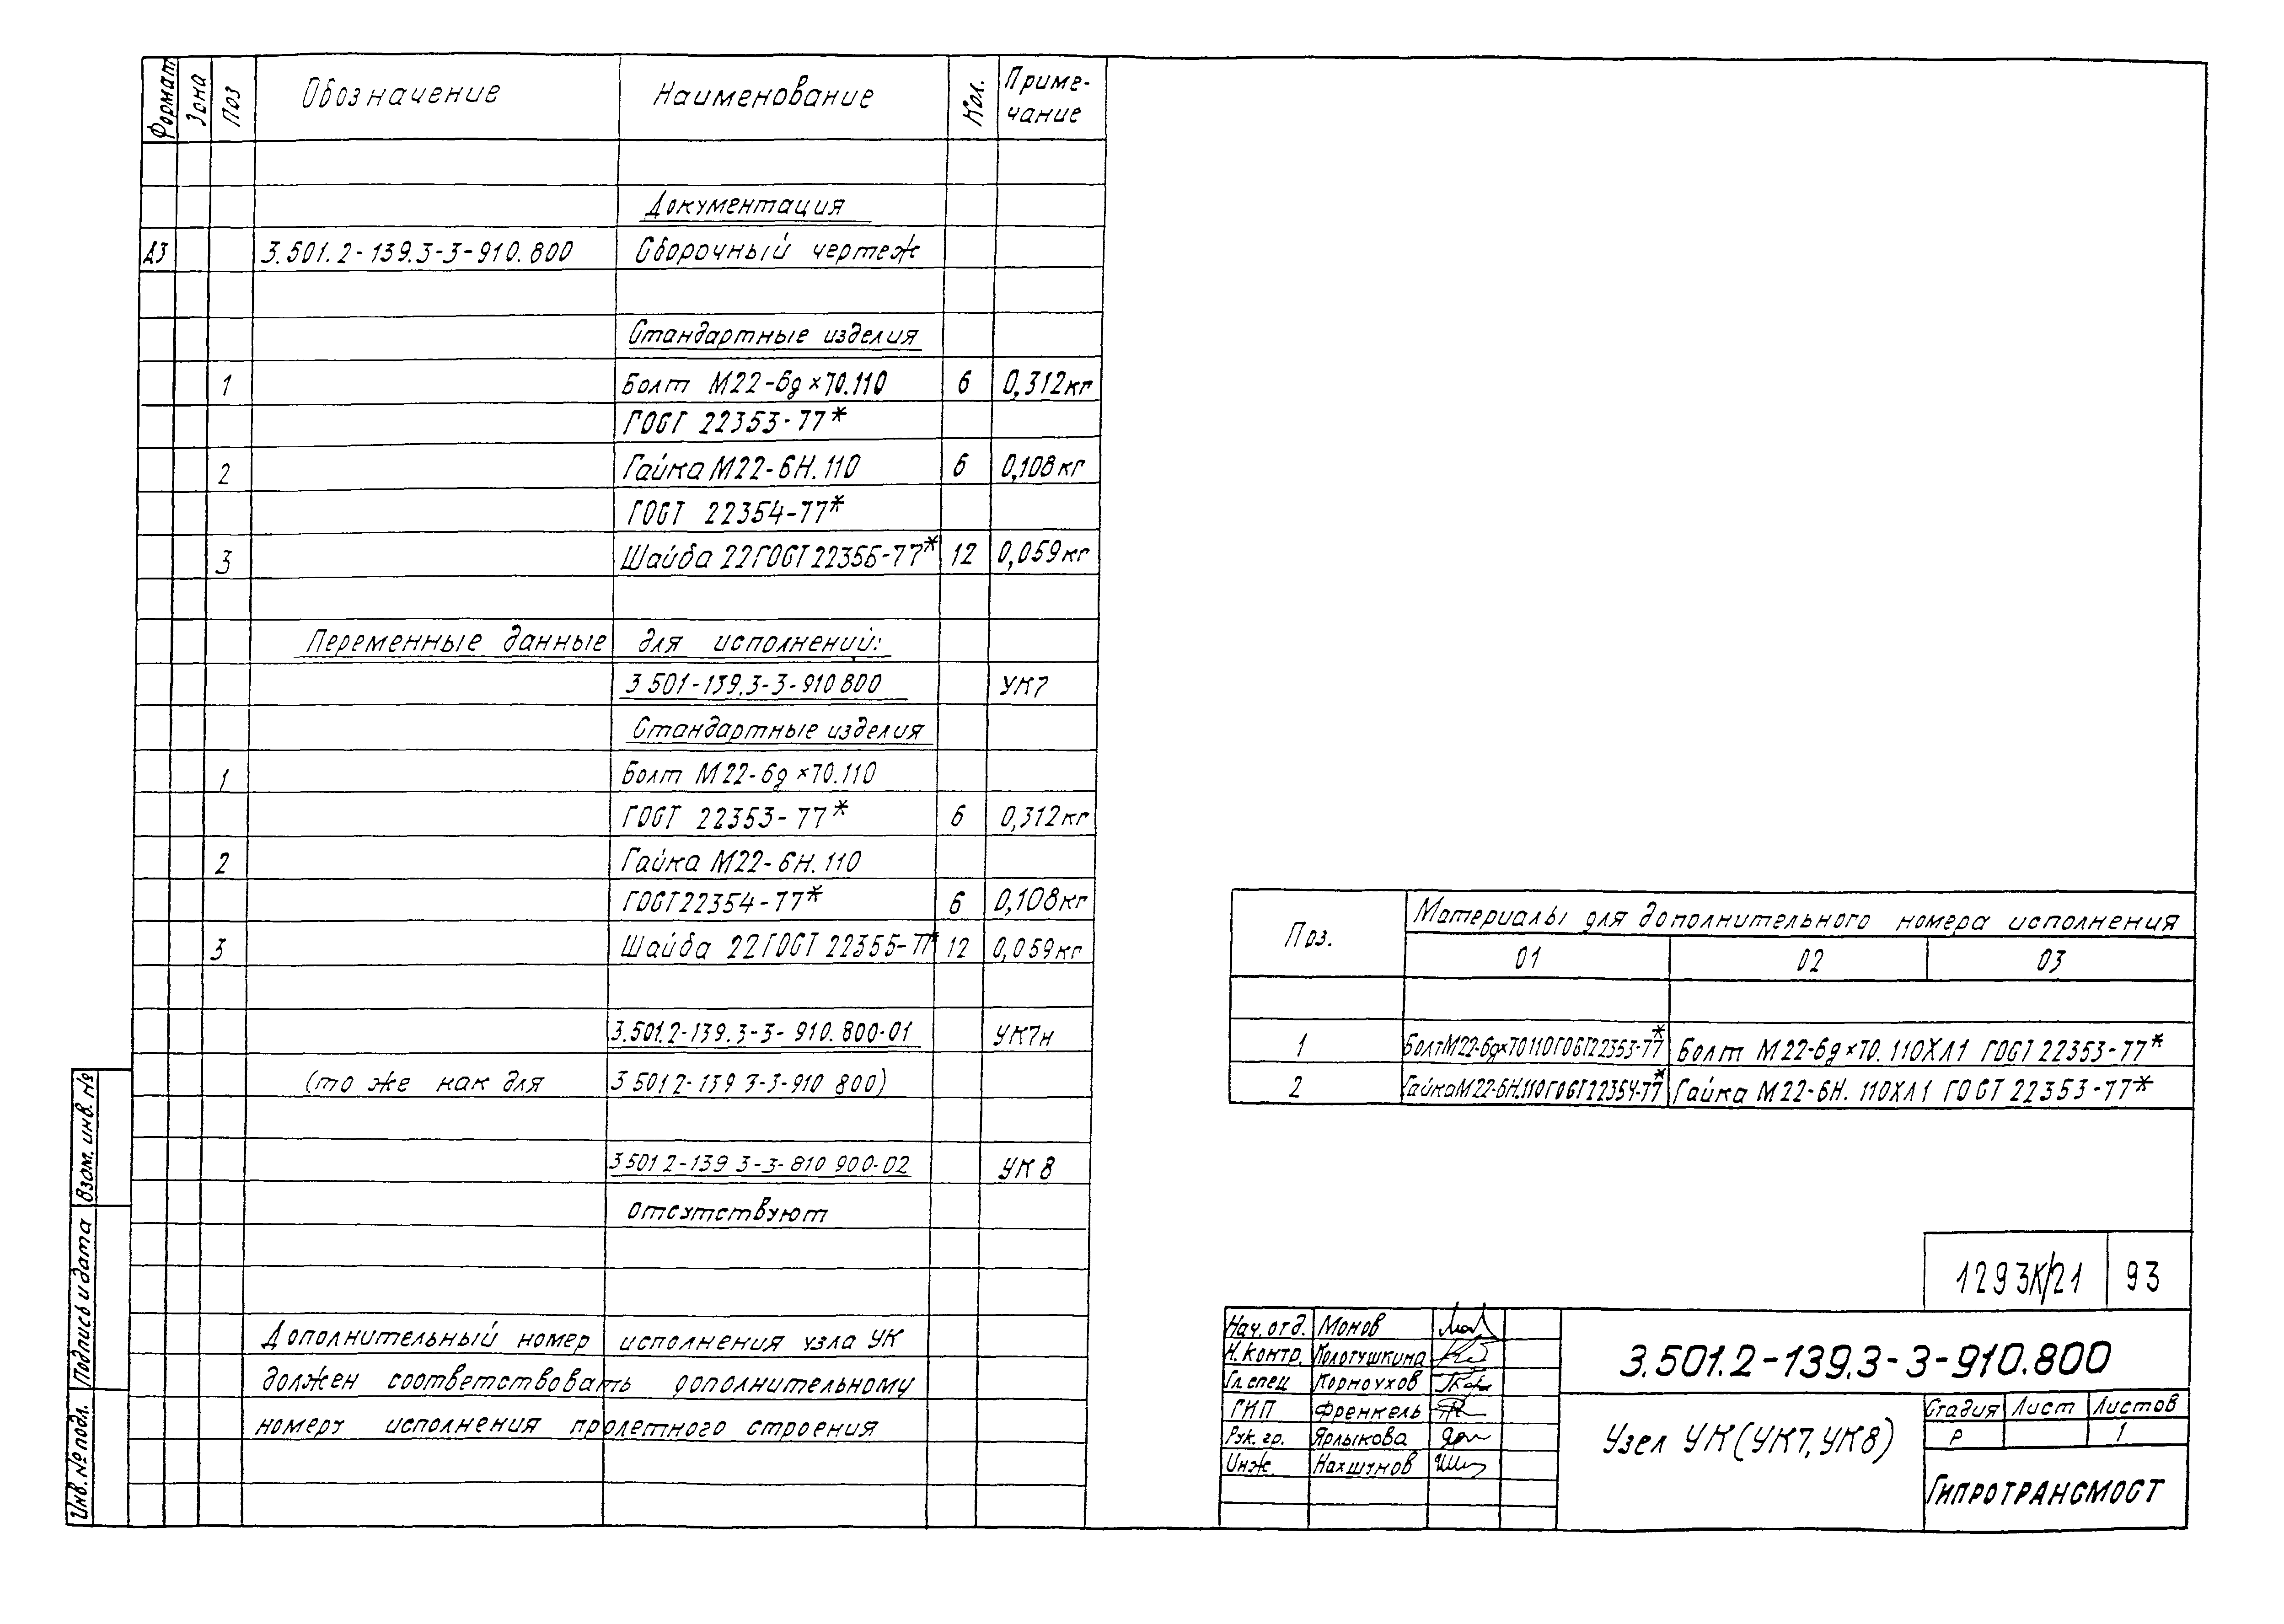 Формат Зона Поз Обозначение Наименование Кол. Приме-
чание
Документация
А3 3.501.2-139.3-3-910.800 Сборочный чертеж
Стандартные изделия
1 Болт М22-6g×70.110 6 0,312кг
ГОСТ 22353-77*
2 Гайка М22-6Н.110 6 0,108кг
ГОСТ 22354-77*
3 Шайба 22ГОСТ22355-77* 12 0,059кг
Переменные данные для исполнений:
3 501-139.3-3-910 800 УК7
Стандартные изделия
1 Болт М22-6g×70.110
ГОСТ 22353-77* 6 0,312кг
2 Гайка М22-6Н.110
ГОСТ22354-77* 6 0,108кг
3 Шайба 22ГОСТ 22355-77* 12 0,059кг
3.501.2-139.3-3-910.800-01 УК7н
(то же как для 3 501 2-139 3-3-910 800)
3 501 2-139 3-3-810 900-02 УК8
отсутствуют
Дополнительный номер исполнения узла УК
должен соответствовать дополнительному
номеру исполнения пролетного строения
Взам. инв. №
Подпись и дата
Инв. № подл.
Поз. Материалы для дополнительного номера исполнения
01 02 03
1 Болт М22-6g×70 110 ГОСТ 22353-77* Болт М22-6g×70.110ХЛ1 ГОСТ 22353-77*
2 Гайка М22-6Н.110 ГОСТ 22354-77* Гайка М22-6Н.110ХЛ1 ГОСТ 22353-77*
1293К/21 93
Нач. отд. Монов
Н. контр. Колотушкина
Гл. спец Корноухов
ГИП Френкель
Рук. гр. Ярлыкова
Инж. Нахшунов
3.501.2-139.3-3-910.800
Узел УК (УК7, УК8)
Стадия Лист Листов
Р 1
Гипротрансмост